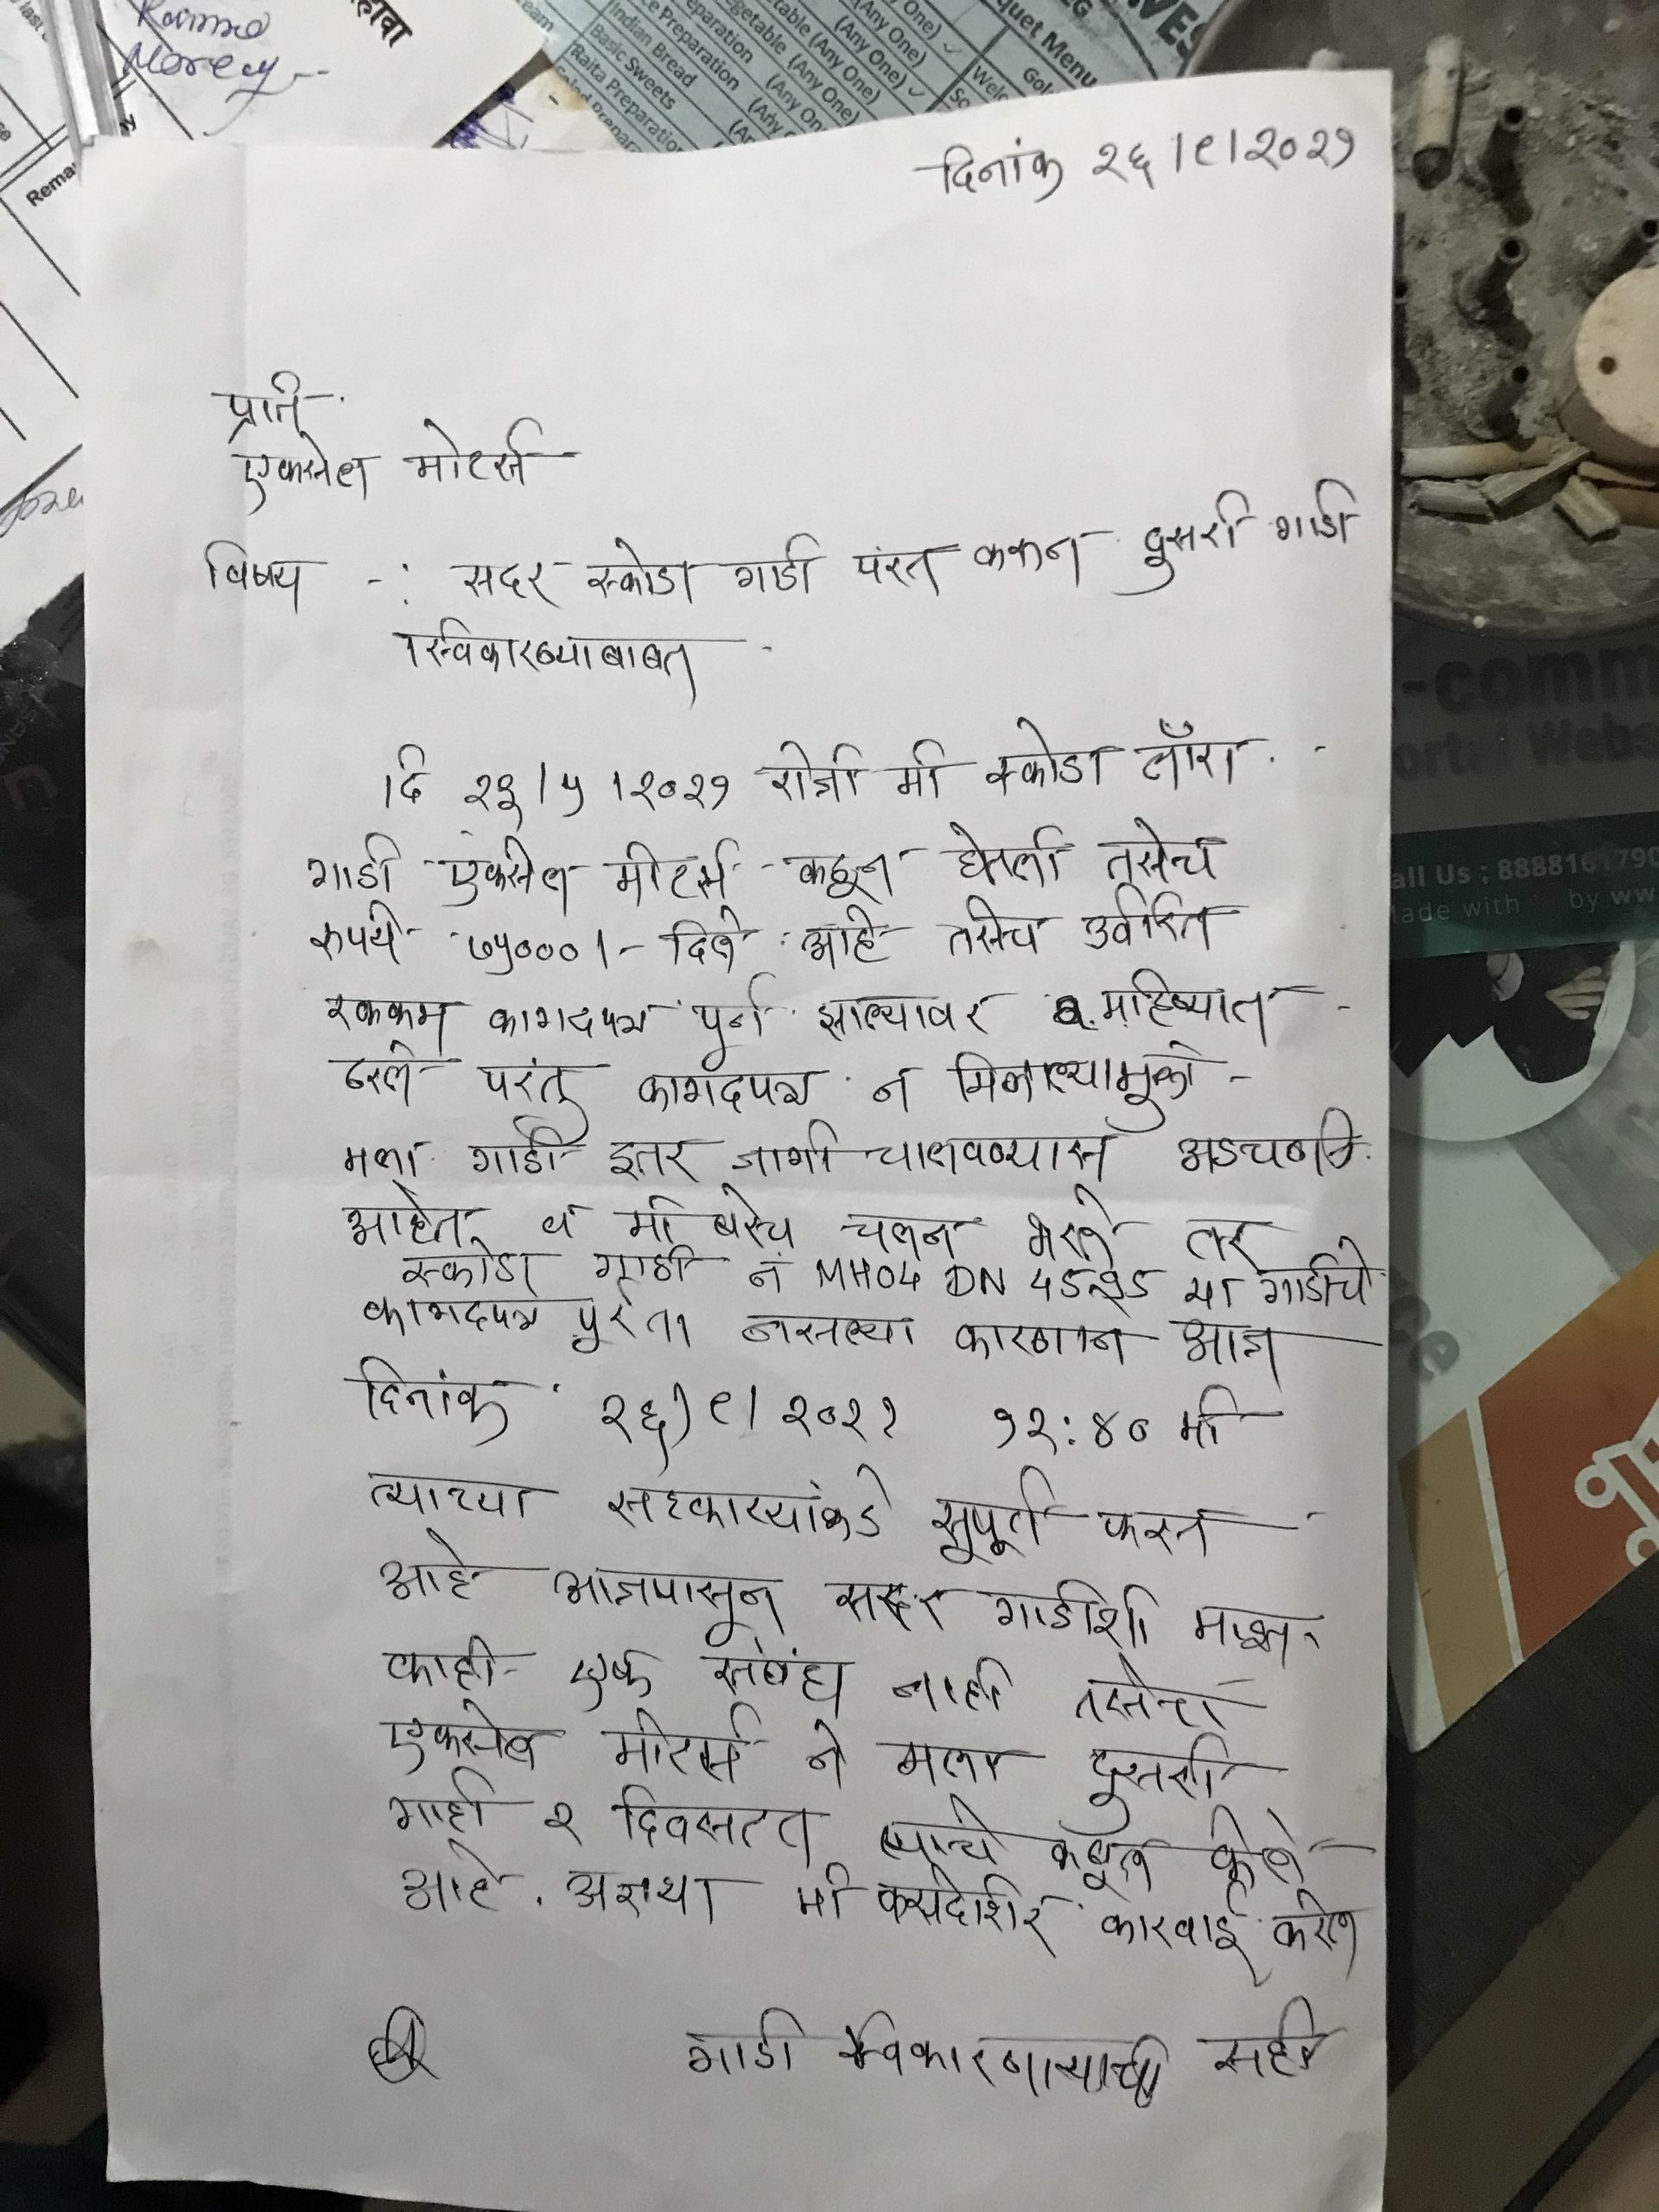 Remar
eam
Indian Bread
Basic Sweets
Raita Preparation
Preparation (Any One)
(Any One)
(Any One)
quet Menu
दिनांक २६/९/२०२१
प्रति
एक्सेल मोटर्स
विषय -: सदर स्कोडा गाडी परत करून दुसरी गाडी
स्विकारण्याबाबत
दि २३/५/२०२१ रोजी मी स्कोडा लॉरा
गाडी एक्सेल मोटर्स कडून घेतली तसेच
रुपये ७५०००/- दिले आहे तसेच उर्वरित
रक्कम कागदपत्र पूर्ण झाल्यावर २ महिन्यात
ठरले परंतु कागदपत्र न मिळाल्यामुळे
मला गाडी इतर जागी चालवण्यास अडचणी
आहेत व मी बरेच चलन भरले तर
स्कोडा गाडी नं MH04 DN या गाडीचे
कागदपत्र पुरता नसल्या कारणाने आज
दिनांक २६/९/२०२१ १२:४० मी
त्याच्या सहकार्यांकडे सूपूर्त करत
आहे आजपासून सदर गाडीशी माझा
काही एक संबंध नाही तसेच
एक्सेल मोटर्स ने मला दुसरी
गाडी २ दिवसात कबूल केले
आहे. अन्यथा मी कायदेशिर कारवाई करेल
गाडी स्विकारणाऱ्याची सही
-comm
ortal Webs
all Us : 8888161790
ade with by ww